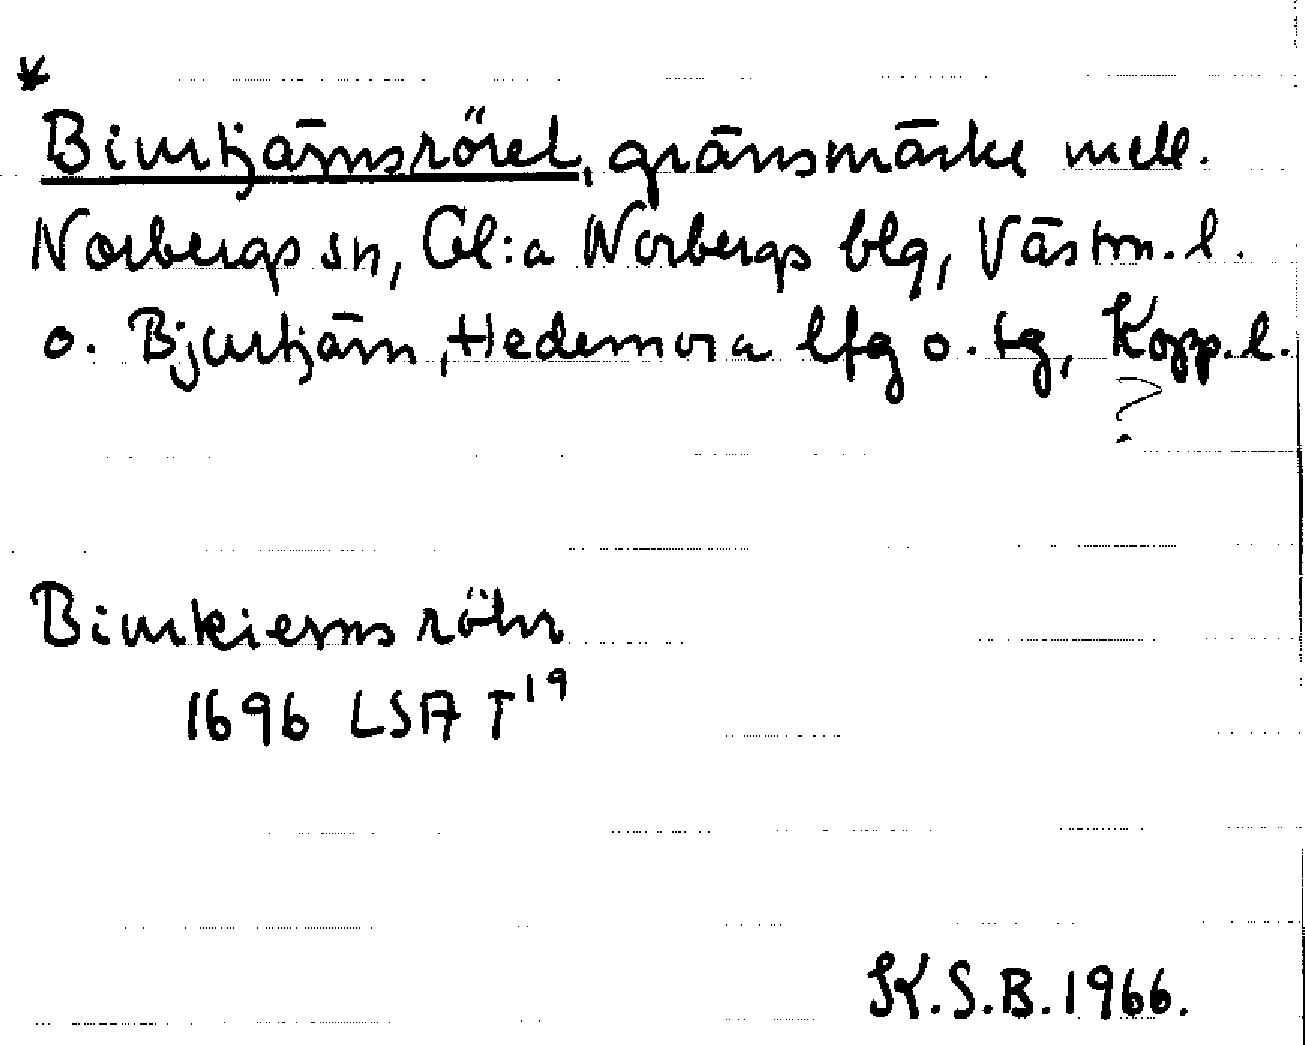 *
Biurtjärnsröret, gränsmärke mell.
Norbergs sn, Gl:a Norbergs blg, Västm. l.
o. Bjurtjärn, Hedemora lfg o. tg, Kopp. l.
?
Biurkierns röhr
1696 LSA T19
K.S.B. 1966.